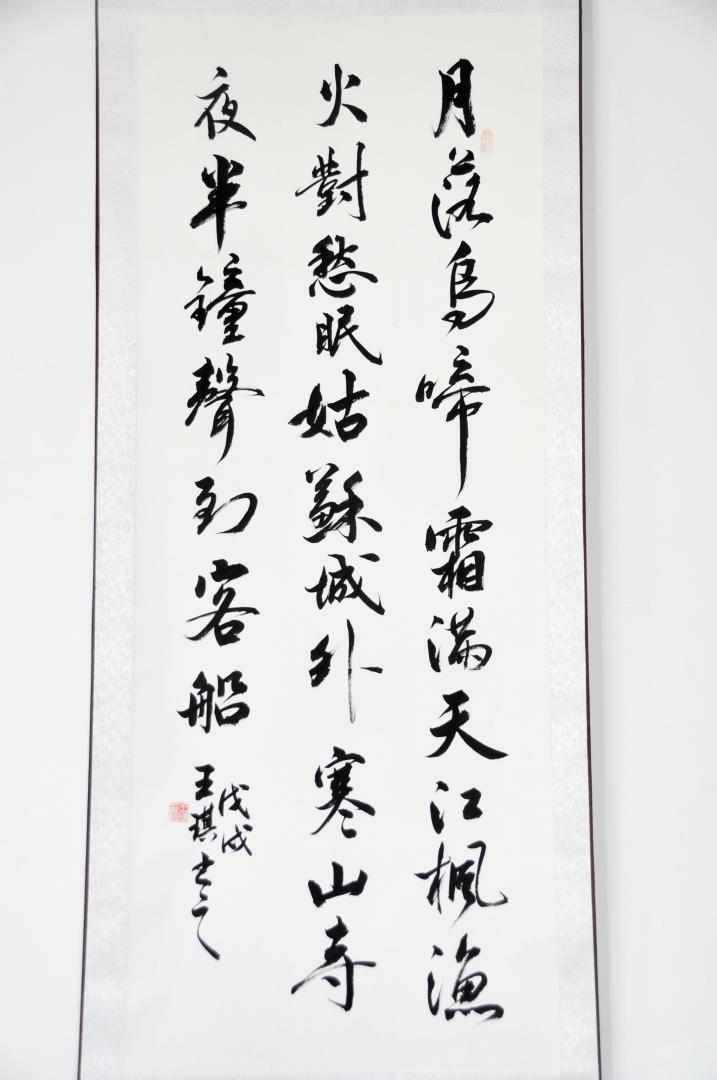 月落烏啼霜滿天江楓漁
火對愁眠姑蘇城外寒山寺
夜半鐘聲到客船
戊戌
王琪士之